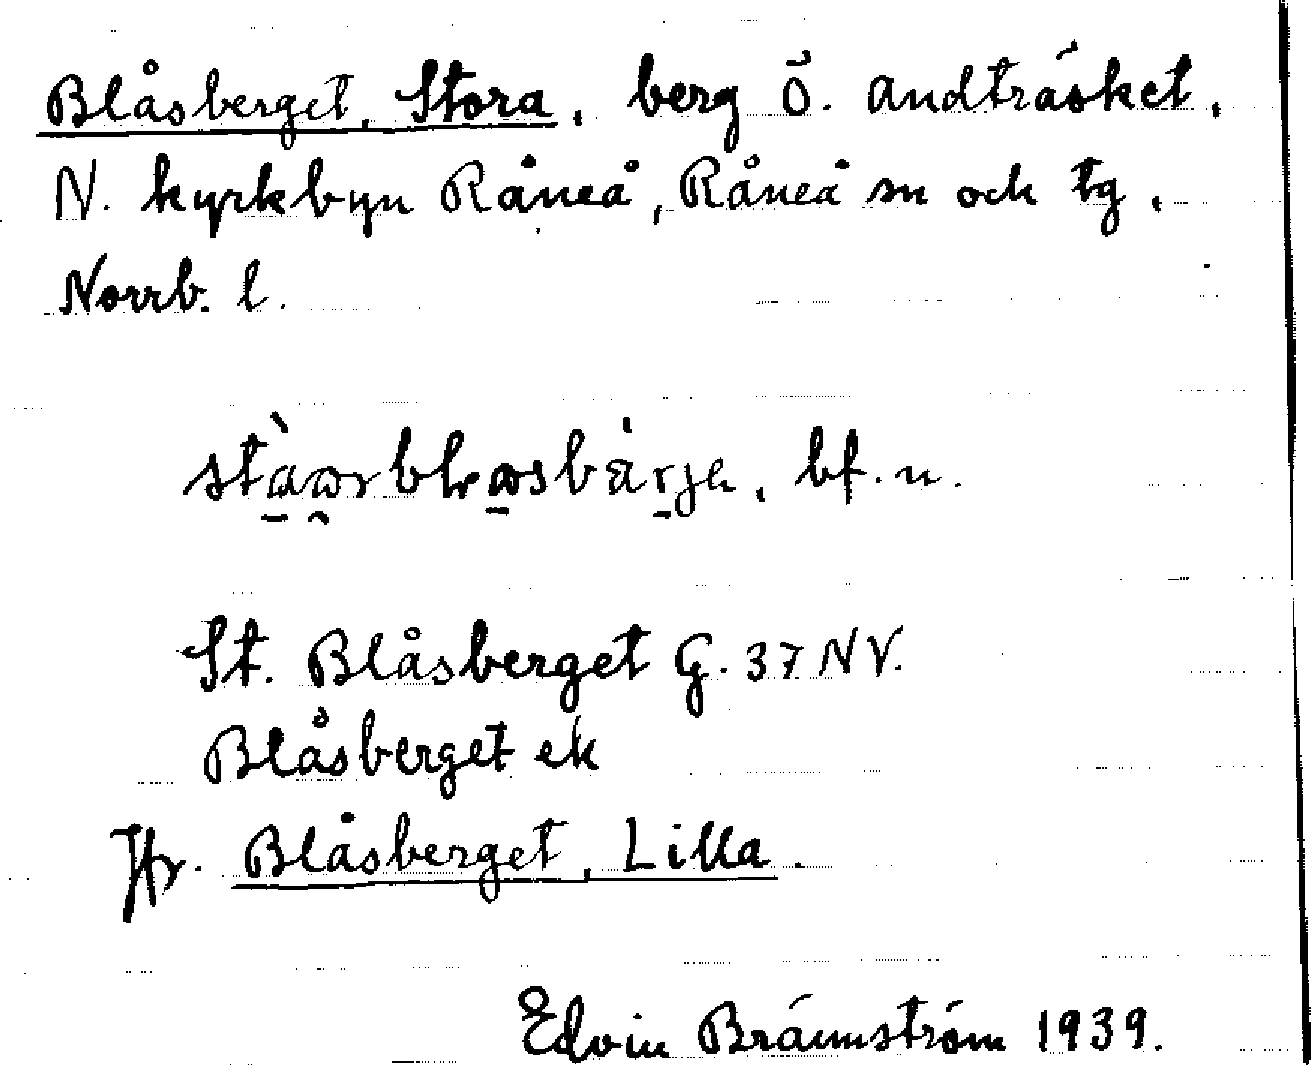 Blåsberget, Stora, berg Ö. Andträsket,
N. kyrkbyn Råneå, Råneå sn och tg,
Norrb. l.
bf. n.
St. Blåsberget G. 37 NV.
Blåsberget ek
Jfr. Blåsberget, Lilla.
Edvin Brännström 1939.